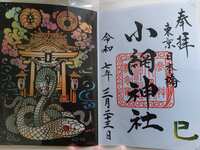 奉拝
東京日本橋
小網神社
令和七年三月二十三日
巳